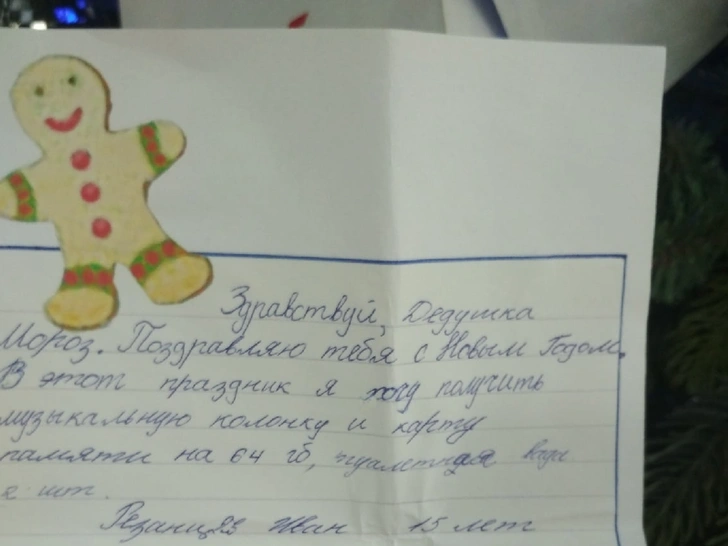 Здравствуй, Дедушка
Мороз. Поздравляю тебя с Новым Годом.
В этот праздник я хочу получить
музыкальную колонку и карту
памяти на 64 гб, туалетная вода
шт.
Иван 15 лет